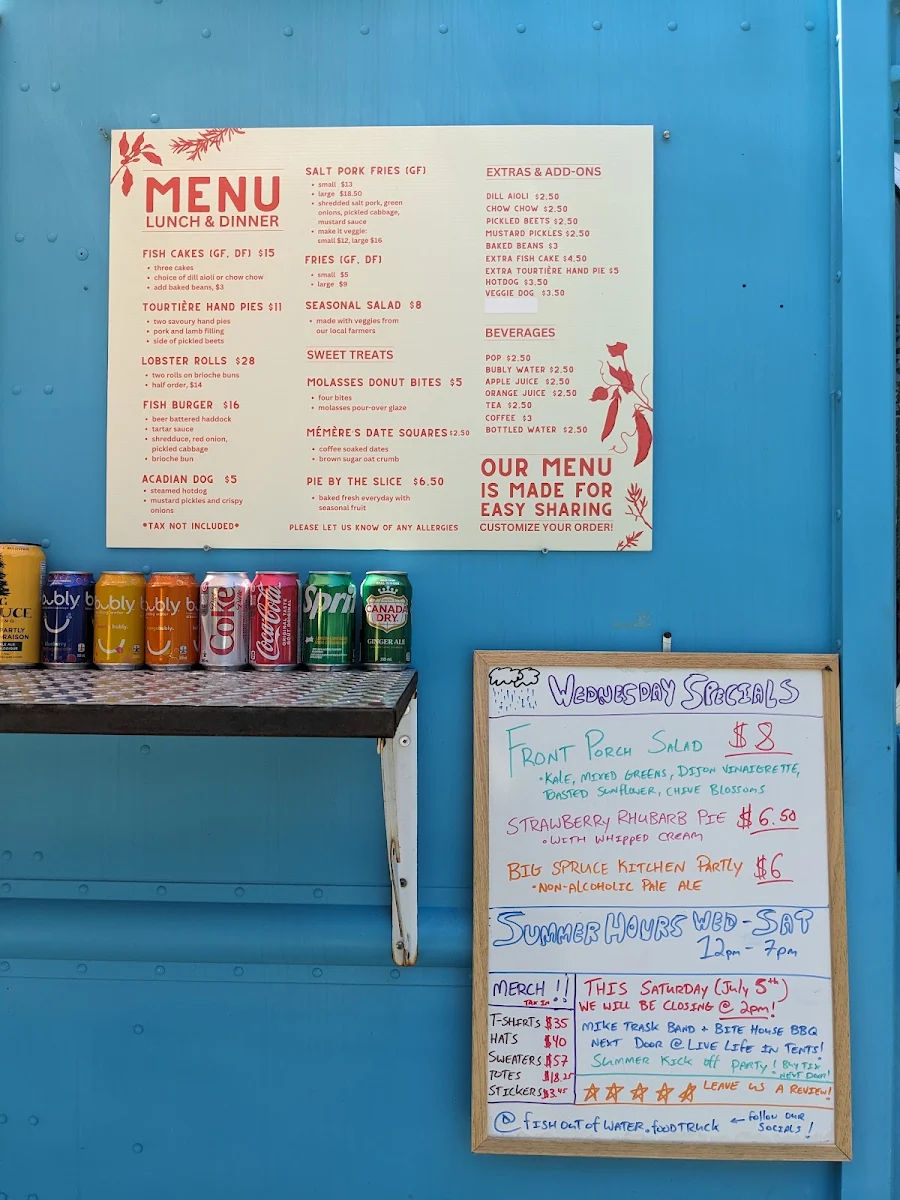 MENU
LUNCH & DINNER
FISH CAKES (GF, DF) $15
• three cakes
• choice of dill aioli or chow chow
• add baked beans, $3
TOURTIÈRE HAND PIES $11
• two savoury hand pies
• pork and lamb filling
• side of pickled beets
LOBSTER ROLLS $28
• two rolls on brioche buns
• half order, $14
FISH BURGER $16
• beer battered haddock
• tartar sauce
• shredduce, red onion,
pickled cabbage
• brioche bun
ACADIAN DOG $5
• steamed hotdog
• mustard pickles and crispy
onions
*TAX NOT INCLUDED*
SALT PORK FRIES (GF)
• small $13
• large $18.50
• shredded salt pork, green
onions, pickled cabbage,
mustard sauce
• make it veggie:
small $12, large $16
FRIES (GF, DF)
• small $5
• large $9
SEASONAL SALAD $8
• made with veggies from
our local farmers
SWEET TREATS
MOLASSES DONUT BITES $5
• four bites
• molasses pour-over glaze
MÉMÈRE'S DATE SQUARES $2.50
• coffee soaked dates
• brown sugar oat crumb
PIE BY THE SLICE $6.50
• baked fresh everyday with
seasonal fruit
PLEASE LET US KNOW OF ANY ALLERGIES
EXTRAS & ADD-ONS
DILL AIOLI $2.50
CHOW CHOW $2.50
PICKLED BEETS $2.50
MUSTARD PICKLES $2.50
BAKED BEANS $3
EXTRA FISH CAKE $4.50
EXTRA TOURTIÈRE HAND PIE $5
HOTDOG $3.50
VEGGIE DOG $3.50
BEVERAGES
POP $2.50
BUBLY WATER $2.50
APPLE JUICE $2.50
ORANGE JUICE $2.50
TEA $2.50
COFFEE $3
BOTTLED WATER $2.50
OUR MENU
IS MADE FOR
EASY SHARING
CUSTOMIZE YOUR ORDER!
bubly
bubly
bubly
Coke
Coca-Cola
ORIGINAL TASTE
Sprit
CANADA
DRY
GINGER ALE
WEDNESDAY SPECIALS
FRONT PORCH SALAD $8
• KALE, MIXED GREENS, DIJON VINAIGRETTE,
TOASTED SUNFLOWER, CHIVE BLOSSOMS
STRAWBERRY RHUBARB PIE $6.50
• WITH WHIPPED CREAM
BIG SPRUCE KITCHEN PARTLY $6
- NON-ALCOHOLIC PALE ALE
SUMMER HOURS WED - SAT
12pm - 7pm
MERCH!!
TAX IN
T-SHIRTS $35
HATS $40
SWEATERS $57
TOTES $18.25
STICKERS $3.45
THIS SATURDAY (July 5th)
WE WILL BE CLOSING @ 2pm!
MIKE TRASK BAND + BITE HOUSE BBQ
NEXT DOOR @ LIVE LIFE IN TENTS!
SUMMER KICK off PARTY! BUY TIX
NEXT DOOR!
LEAVE US A REVIEW!
@ fISH OUT of WATER.foodTRUCK ← follow our
SOCIALS!